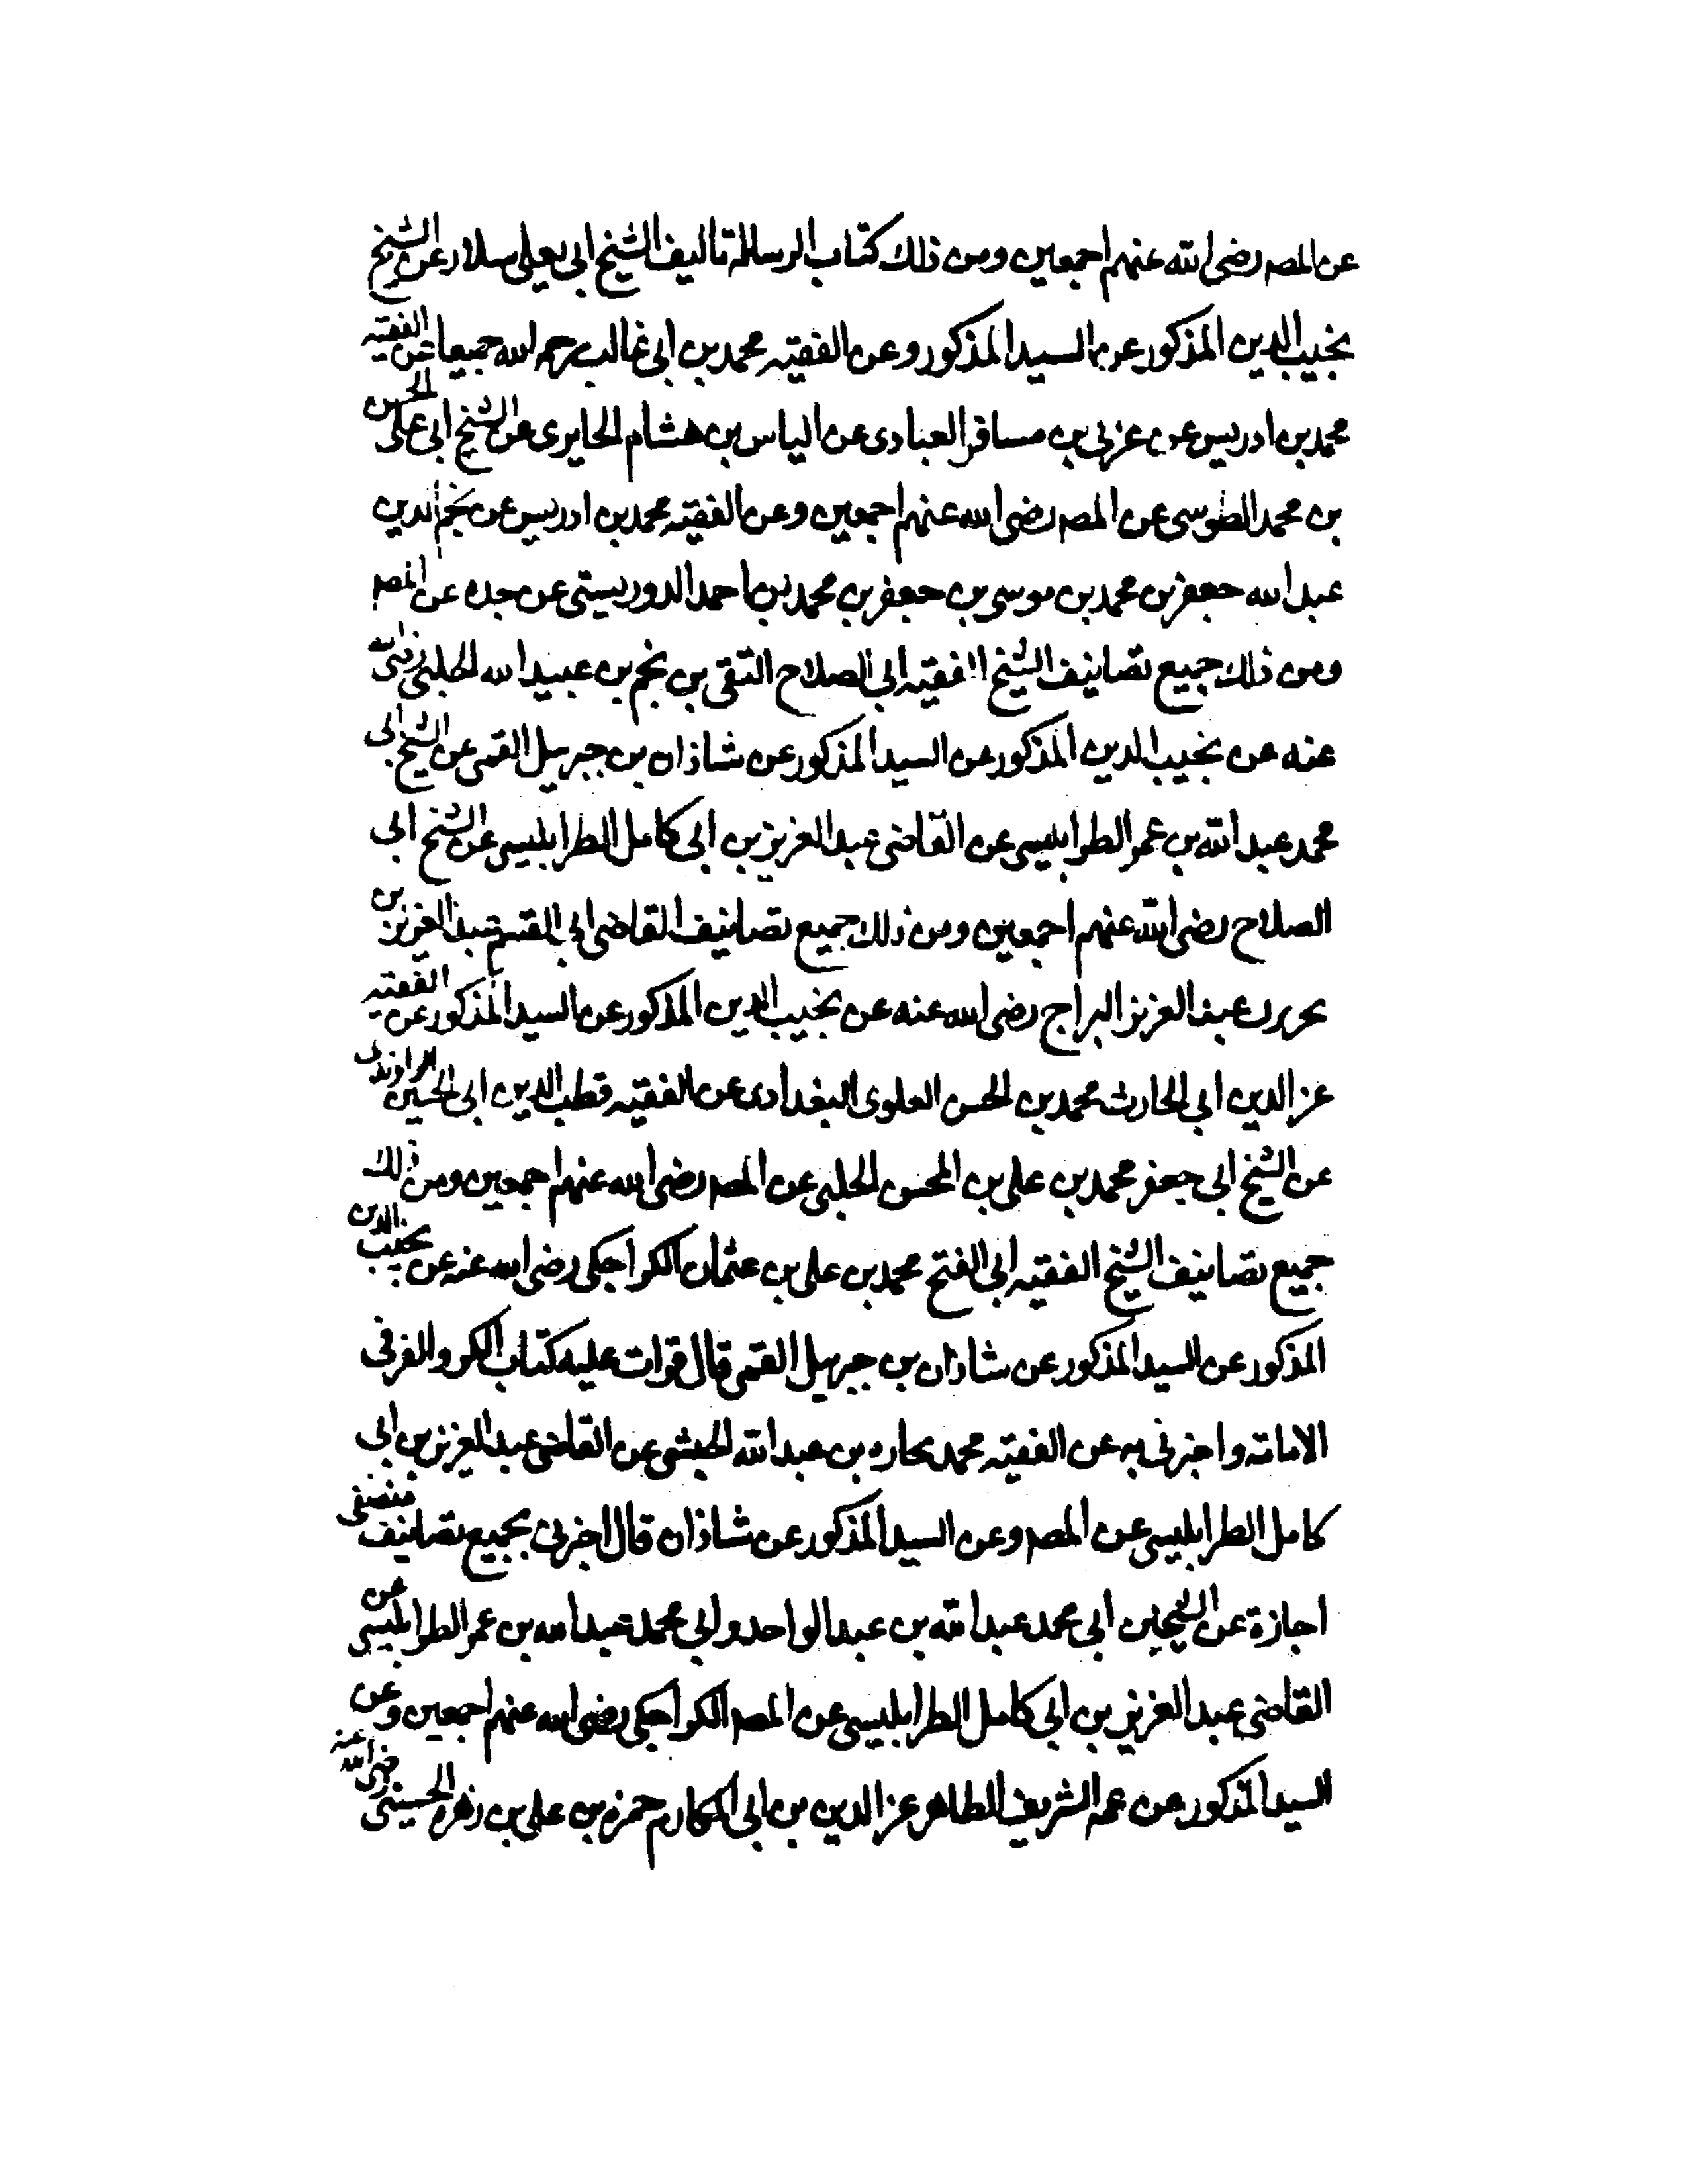 عن المصه رضى الله عنهم اجمعين ومن ذلك كتاب الرسالة تاليف الشيخ ابى يعلى سلار عن الشيخ
نجيب الدين المذكور عن السيد المذكور وعن الفقيه محمد بن ابى غالب رحمه الله جميعا عن الفقيه
محمد بن ادريس عن عربى بن مسافر العبادى عن الياس بن هشام الحايرى عن الشيخ ابى على الحسن
بن محمد الطوسى عن المصه رضى الله عنهم اجمعين وعن الفقيه محمد بن ادريس عن نجم الدين
عبد الله جعفر بن محمد بن موسى بن جعفر بن محمد بن احمد الدوريستى عن جده عن المصه
ومن ذلك جميع تصانيف الشيخ الفقيه ابى الصلاح التقى بن نجم بن عبيد الله الحلبى رضى الله
عنه عن نجيب الدين المذكور عن السيد المذكور عن شاذان بن جبرييل القمى عن الشيخ ابى
محمد عبد الله بن عمر الطرابلسى عن القاضى عبد العزيز بن ابى كامل الطرابلسى عن الشيخ ابى
الصلاح رضى الله عنهم اجمعين ومن ذلك جميع تصانيف القاضى ابى القسم عبد العزيز بن
نحرير بن عبد العزيز البراج رضى الله عنه عن نجيب الدين المذكور عن السيد المذكور عن الفقيه
عز الدين ابى الحارث محمد بن الحسن العلوى البغدادى عن الفقيه قطب الدين ابى الحسين الراوندى
عن الشيخ ابى جعفر محمد بن على بن المحسن الحلبى عن المصه رضى الله عنهم اجمعين ومن ذلك
جميع تصانيف الشيخ الفقيه ابى الفتح محمد بن على بن عثمان الكراجكى رضى الله عنه عن نجيب الدين
المذكور عن السيد المذكور عن شاذان بن جبرييل القمى قال قرات عليه كتاب الكر والفر فى
الامامة واخبرنى به عن الفقيه محمد بن عبد الله الحبشى عن القاضى عبد العزيز بن ابى
كامل الطرابلسى عن المصه وعن السيد المذكور عن شاذان قال اخبرنى بجميع تصانيف
اجازة عن الشيخين ابى محمد عبد الله بن عبد الواحد وابى محمد عبد الله بن عمر الطرابلسى عن
القاضى عبد العزيز بن ابى كامل الطرابلسى عن المصه الكراجكى رضى الله عنهم اجمعين وعن
السيد المذكور عن عمه الشريف الطاهر عز الدين بن ابى المكارم حمزه بن على بن زهره الحسينى رضى الله عنه